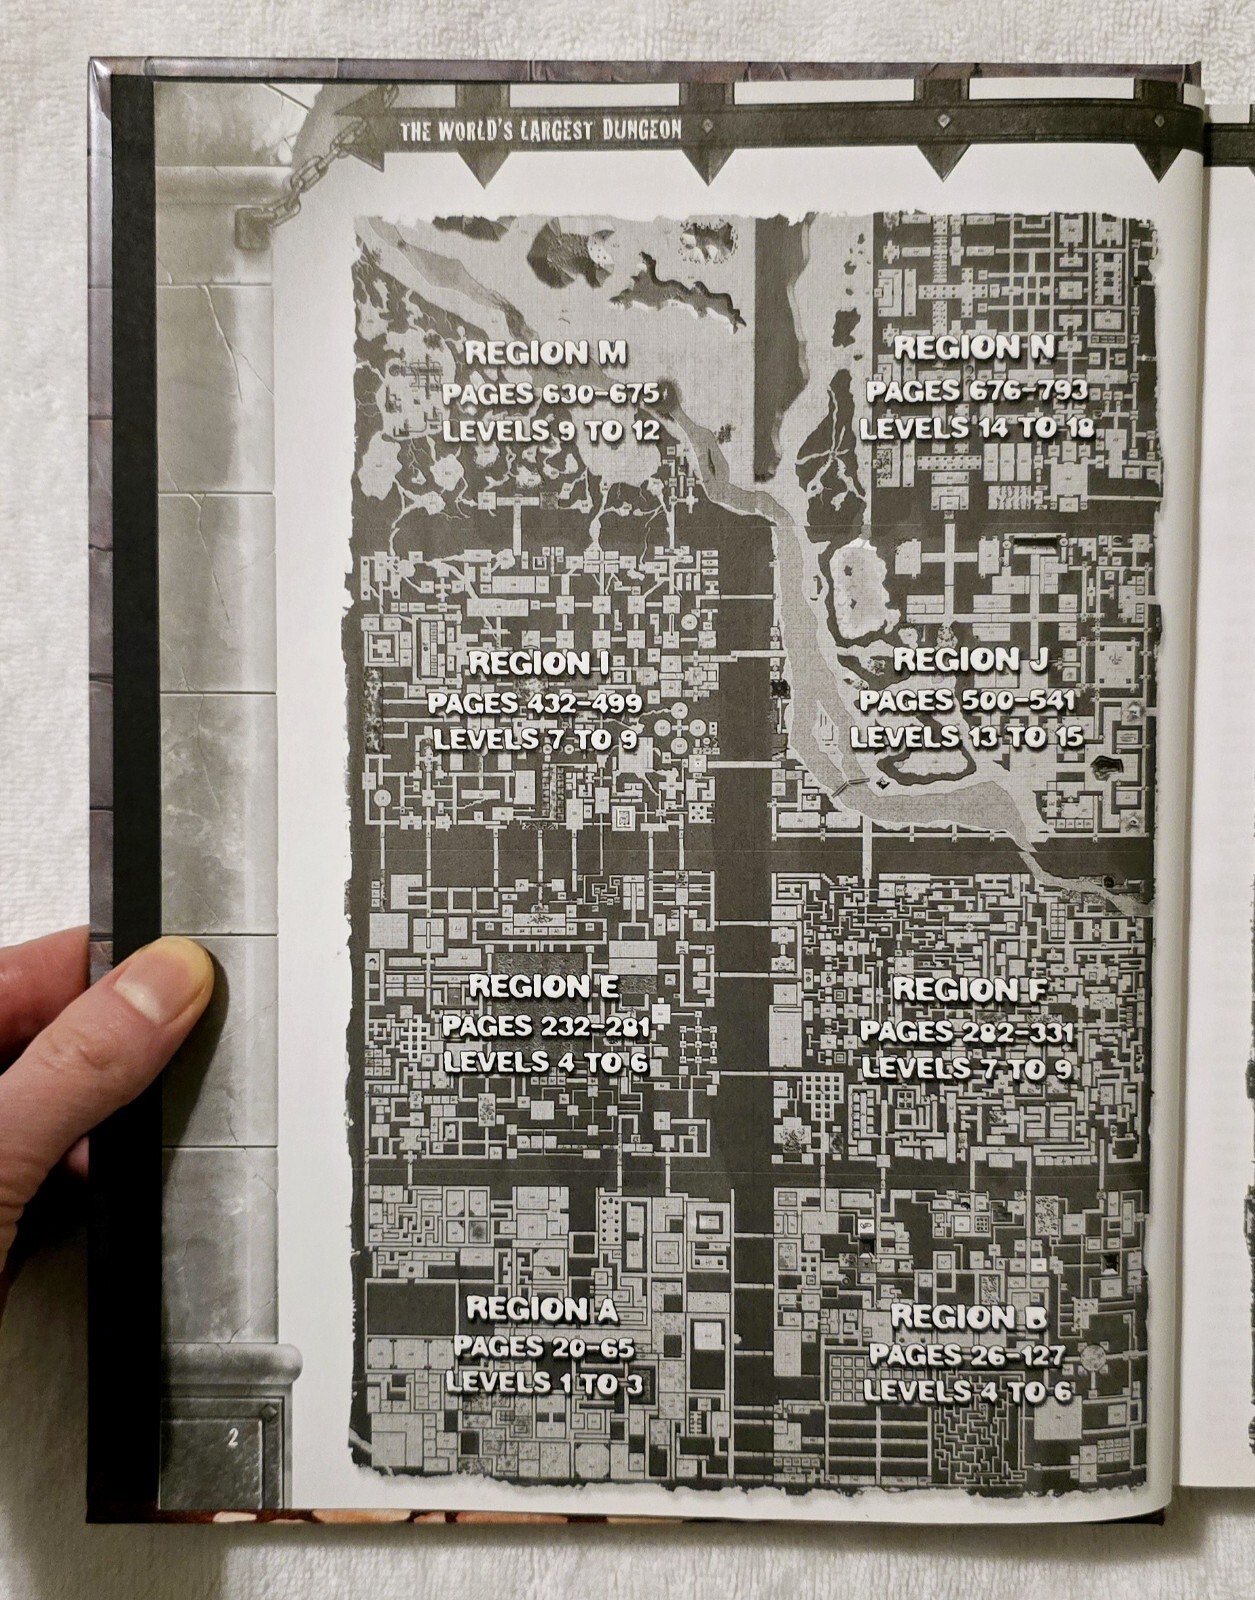 THE WORLD'S LARGEST DUNGEON
REGION M
PAGES 630-675
LEVELS 9 TO 12
REGION N
PAGES 676-793
LEVELS 14 TO 18
REGION I
PAGES 432-499
LEVELS 7 TO 9
REGION J
PAGES 500-541
LEVELS 13 TO 15
REGION E
PAGES 232-281
LEVELS 4 TO 6
REGION F
PAGES 282-331
LEVELS 7 TO 9
REGION A
PAGES 20-65
LEVELS 1 TO 3
REGION B
PAGES 26-127
LEVELS 4 TO 6
2